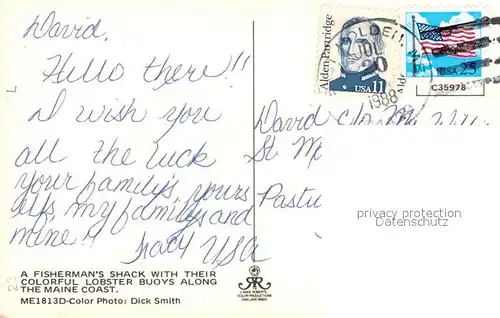 David,
Hello there!!
I wish you
all the luck
your family's yours
my family's and
mine!!
Tracy USA
A FISHERMAN'S SHACK WITH THEIR
COLORFUL LOBSTER BUOYS ALONG
THE MAINE COAST.
ME1813D-Color Photo: Dick Smith
Alden Partridge
USA 11
JUL
20
1988
USA 25
C35978
David
St. M
privacy protection
Datenschutz